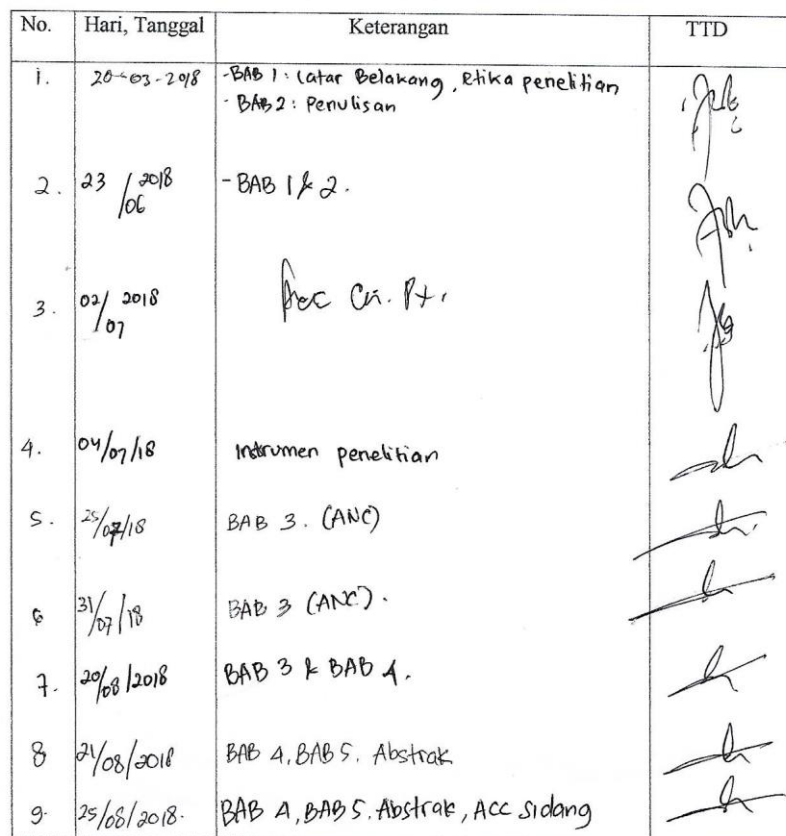 No. Hari, Tanggal Keterangan TTD
1. 20-03-2018 - BAB 1 : Latar Belakang, Etika penelitian
- BAB 2 : Penulisan
2. 23/06 2018 - BAB 1 & 2.
3. 02/07 2018 Acc
4. 04/07/18 Instrumen penelitian
5. 25/07/18 BAB 3. (ANC)
6 31/07/18 BAB 3 (ANC).
7. 20/08/2018 BAB 3 & BAB 4.
8 21/08/2018 BAB 4, BAB 5. Abstrak
9. 25/08/2018. BAB 4, BAB 5. Abstrak, Acc Sidang